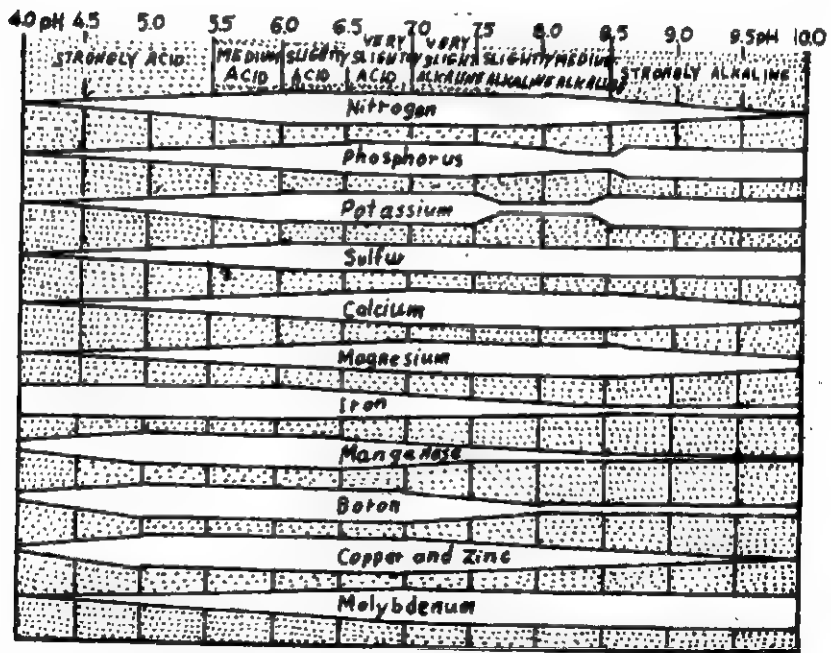 4.0 pH 4.5 5.0 5.5 6.0 6.5 7.0 7.5 8.0 8.5 9.0 9.5 pH 10.0
STRONGLY ACID
MEDIUM ACID
SLIGHTLY ACID
VERY SLIGHTLY ACID
VERY SLIGHTLY ALKALINE
SLIGHTLY ALKALINE
MEDIUM ALKALINE
STRONGLY ALKALINE
Nitrogen
Phosphorus
Potassium
Sulfur
Calcium
Magnesium
Iron
Manganese
Boron
Copper and Zinc
Molybdenum